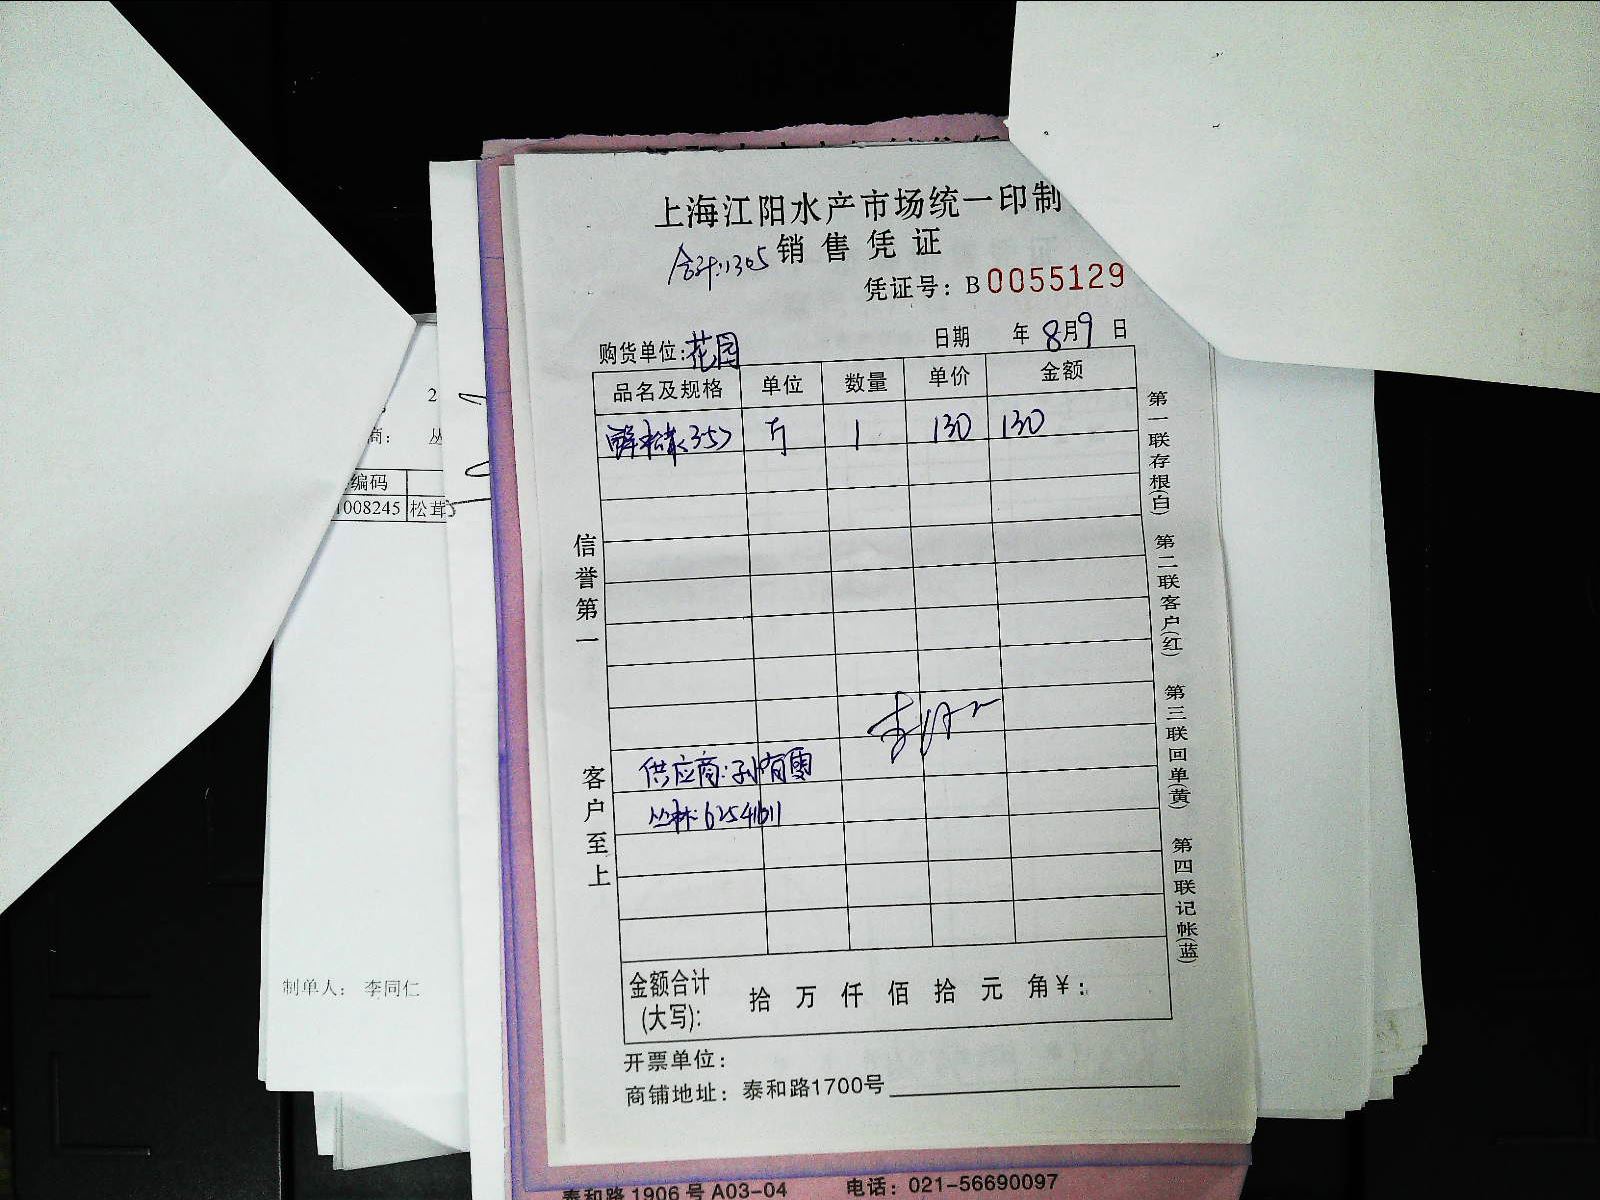 上海江阳水产市场统一印制
合计:1305 销售凭证
凭证号: B0055129
购货单位:花园 日期 年 8月9日
品名及规格 单位 数量 单价 金额
鲜松茸<357 斤 1 130 130
信誉第一
客户至上
供应商:孙有雯
丛林:62541611
金额合计 拾万仟佰拾元角¥:
(大写):
开票单位:
商铺地址: 泰和路1700号
第一联存根(白) 第二联客户(红) 第三联回单(黄) 第四联记帐(蓝)
2
商: 丛
编码
1008245 松茸
制单人: 李同仁
泰和路1906号A03-04 电话: 021-56690097